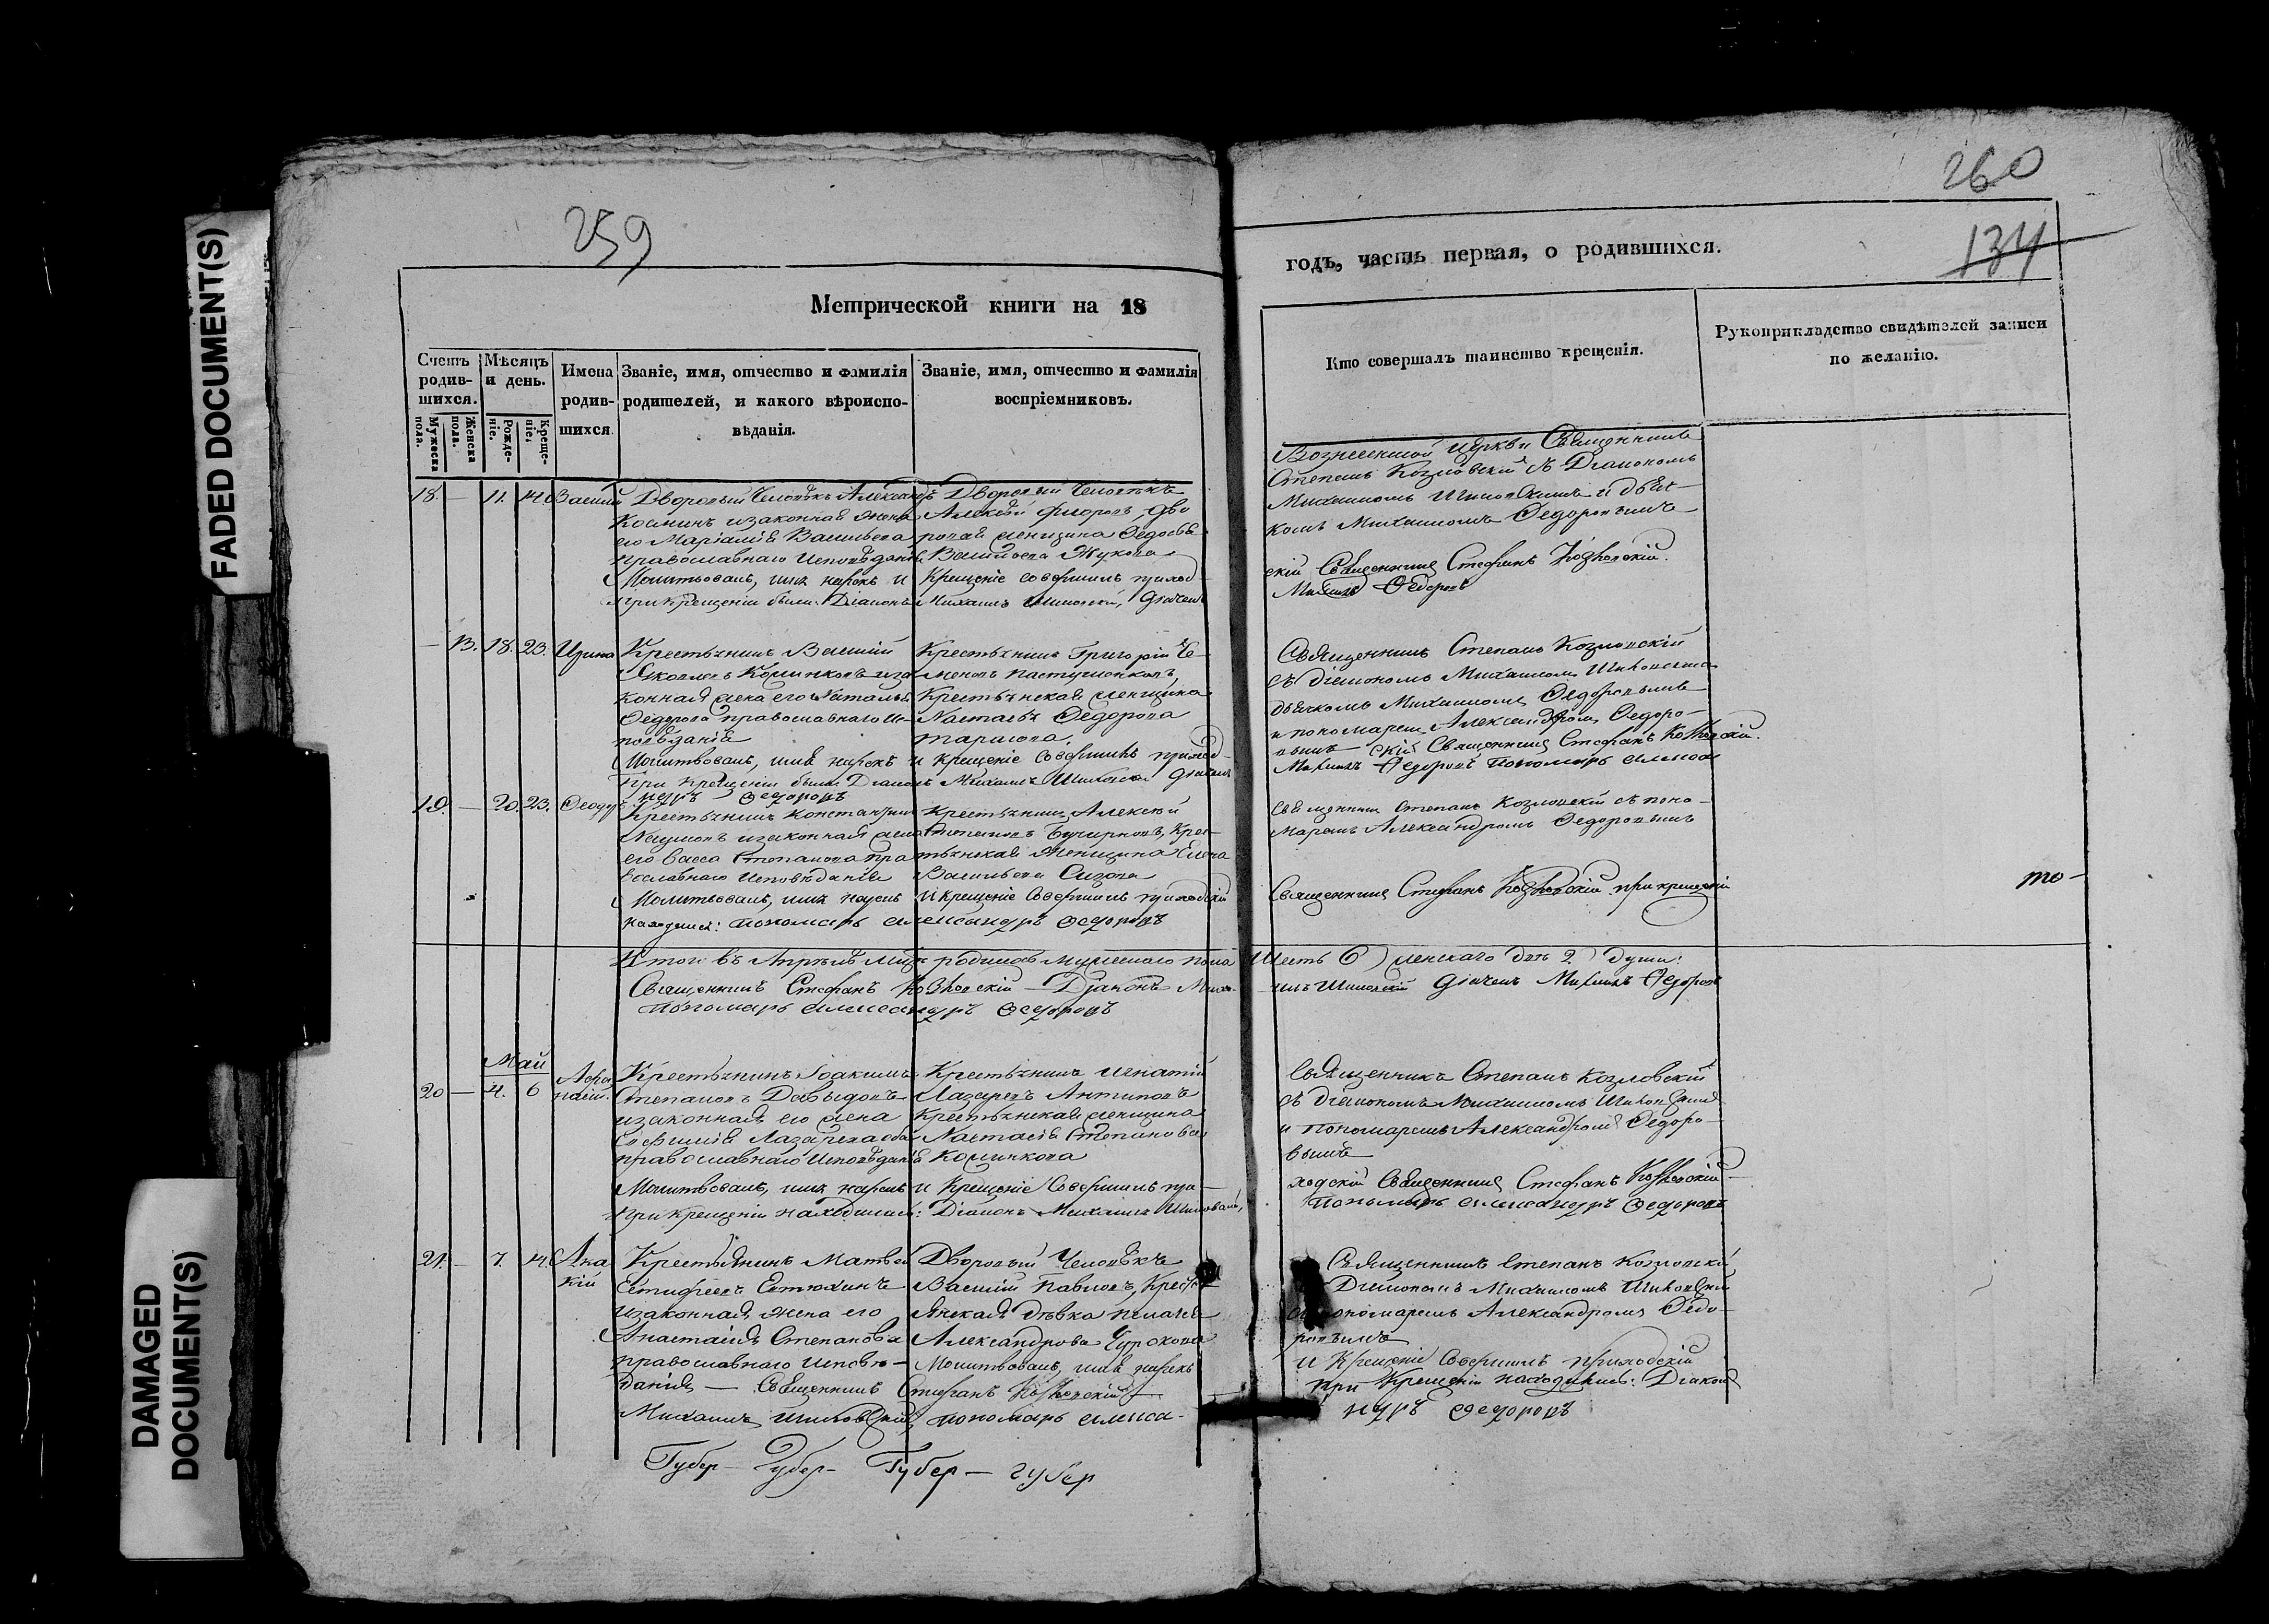 FADED DOCUMENT(S)
DAMAGED
DOCUMENT(S)
259
Метрической книги на 18
Счетъ родив-шихся.
Мужеска пола.
Женска пола.
Мѣсяцъ и день.
Рожде-ніе.
Креще-ніе.
Имена родив-шихся.
Званіе, имя, отчество и фамилія
родителей, и какого вѣроиспо-
вѣданія.
Званіе, имя, отчество и фамилія
воспріемниковъ.
18. — 11. 14. Василій
Дворовый Человѣкъ Александръ
Косминъ и законная жена
его Маріамія Васильева
православнаго Исповѣданія
Дворовый Человѣкъ
Алексѣй Федоровъ, дво
ровая женщина Федосья
Васильева Жукова
Молитвовалъ, имя нарекъ и Крещеніе совершилъ приход-
При крещеніи были: Діаконъ Михаилъ Дьячекъ
— 13. 18. 23. Ирина
Крестьянинъ Василій
Яковлевъ и за
конная жена его Наталья
Федорова православнаго Ис-
повѣданія
Крестьянинъ Григорій Се-
меновъ
Крестьянская женщина
Настасья Федорова
Тарасова.
Молитвовалъ, имя нарекъ и крещеніе Совершилъ приход-
При Крещеніи были Діаконъ Михаилъ Дьячекъ
ндръ Федоровъ
19. — 20. 23. Феодоръ
Крестьянинъ Константинъ
Наумовъ и законная жена
его Васса Степанова пра
вославнаго Исповѣданія
Крестьянинъ Алексѣй
Степановъ Крес-
тьянская женщина Елена
Васильева
Молитвовалъ, имя нарекъ и крещеніе Совершилъ приходскій
находился: Пономарь Александръ Федоровъ
Итого въ Апрѣлѣ Мцѣ родилось Мужескаго пола
Священникъ Стефанъ Козловскій — Діаконъ Миха-
Пономарь Александръ Федоровъ
Май
20 — 4. 6 Афанасій.
Крестьянинъ Іоакимъ
Степановъ Давыдовъ
и законная его жена
Евфимія Лазарева оба
православнаго Исповѣданія
Крестьянинъ Игнатій
Лазаревъ Антиповъ
Крестьянская женщина
Настасія Степанова
Молитвовалъ, имя нарекъ и Крещеніе Совершилъ при-
При крещеніи находились: Діаконъ Михаилъ
21. — 7. 14. Ака
кій
Крестьянинъ Матвей
Евтюхинъ
и законная жена его
Анастасія Степанова
православнаго Исповѣ-
данія — Священникъ Стефанъ Козловскій
Дворовый Человѣкъ
Василій Павловъ, Кресть
янская дѣвка Пелагея
Александрова
Молитвовалъ, имя нарекъ
Михаилъ Пономарь Алекса-
Губер — Губер — Губер — губер
260
134
годъ, часть первая, о родившихся.
Кто совершалъ таинство крещенія.
Рукоприкладство свидѣтелей записи
по желанію.
Церкви Священникъ
Степанъ Козловскій съ Діакономъ
Михаиломъ и дьяч-
комъ Михаиломъ Федоровымъ
скій Священникъ Стефанъ Козловскій.
Михаилъ Федоровъ
Священникъ Степанъ Козловскій
съ діакономъ Михаиломъ
дьячкомъ Михаиломъ Федоровымъ
и пономаремъ Александромъ Федоро-
вымъ скій Священникъ Стефанъ Козловскій.
Михаилъ Федоровъ Пономарь Алекса
Священникъ Степанъ Козловскій съ поно-
маремъ Александромъ Федоровымъ
Священникъ Стефанъ Козловскій при крещеніи
то —
Шесть 6) женскаго двѣ 2) души:
илъ Дьячекъ Михаилъ Федоровъ
Священникъ Степанъ Козловскій
съ діакономъ Михаиломъ
и пономаремъ Александромъ Федоро-
вымъ
ходскій Священникъ Стефанъ Козловскій
Пономарь Александръ Федоровъ
Священникъ Степанъ Козловскій
Діакономъ Михаиломъ
пономаремъ Александромъ Федо-
ровымъ
и Крещеніе Совершилъ приходскій
при Крещеніи находились: Діаконъ
ндръ Федоровъ